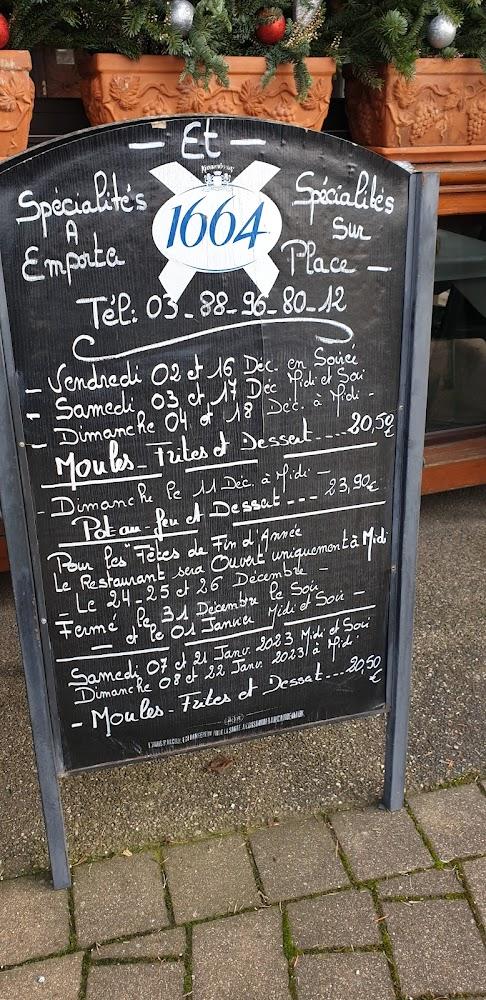 — Et —
Spécialités
A
Emporta
Kronenbourg
1664
Spécialités
Sur
Place —
Tél: 03_88_96_80_12
- Vendredi 02 et 16 Déc. en Soirée
- Samedi 03 et 17 Déc Midi et Soir
- Dimanche 04 et 18 Déc. à Midi -
Moules_Frites et Dessert....20,50€
- Dimanche le 11 Déc. à Midi -
Pot-au-feu et Dessert --- 23,90€
Pour les "Fêtes de Fin d'Année
Le Restaurant sera Ouvert uniquement à Midi
- Le 24-25 et 26 Décembre -
Fermé le 31 Décembre le Soir
- et le 01 Janvier Midi et Soir -
Samedi 07 et 21 Janv. 2023 Midi et Soir
Dimanche 08 et 22 Janv. 2023 à Midi
- Moules-Frites et Dessert....20,50€
L'ABUS D'ALCOOL EST DANGEREUX POUR LA SANTÉ. À CONSOMMER AVEC MODÉRATION.